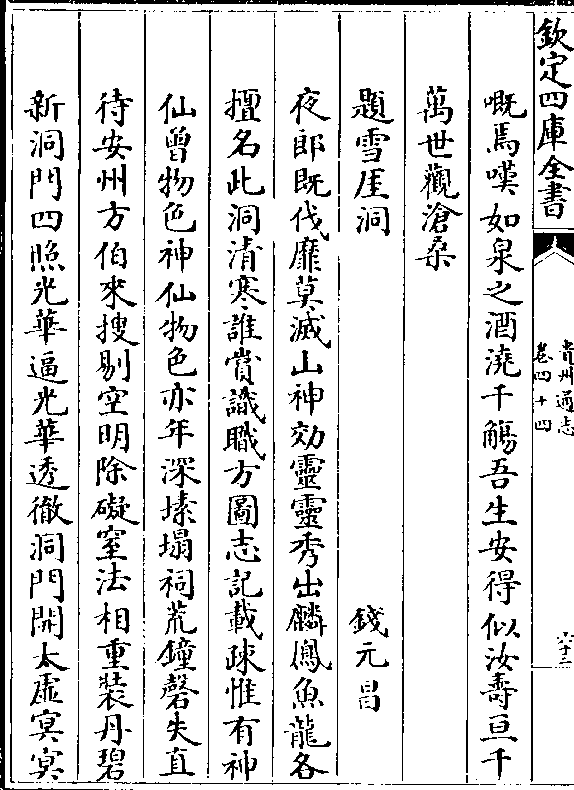 欽定四庫全書
貴州通志
卷四十四
六十三
嘅焉嘆如泉之酒澆千觴吾生安得似汝壽亘千
萬世觀滄桑
題雪厓洞 錢元昌
夜郎既伐靡莫滅山神効靈靈秀出麟鳳魚龍各
擅名此洞清寒誰賞識職方圖志記載疎惟有神
仙曾物色神仙物色亦年深壊塌祠荒鐘磬失直
待安州方伯來搜剔空明除礙窒法相重裝丹碧
新洞門四照光華逼光華透徹洞門開太虛冥冥